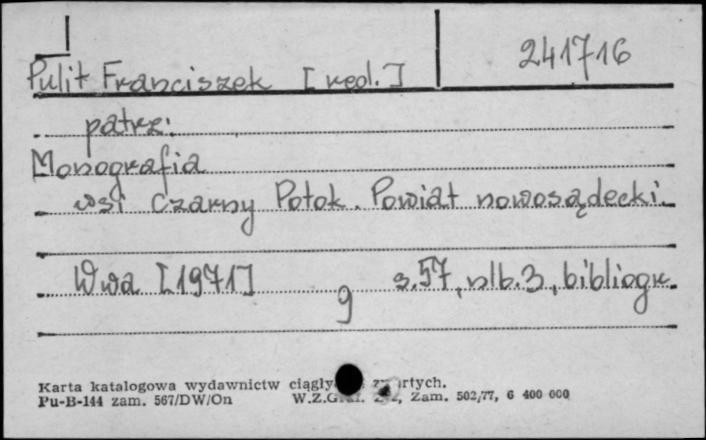 241716
Pulit Franciszek [red.]
patrz:
Monografia
wsi Czarny Potok. Powiat nowosądecki.
Wwa [1971] s.57, nlb.3, bibliogr.
9
Karta katalogowa wydawnictw
Pu-B-144 zam. 567/DW/On Zam. 502/77, 6 400 000